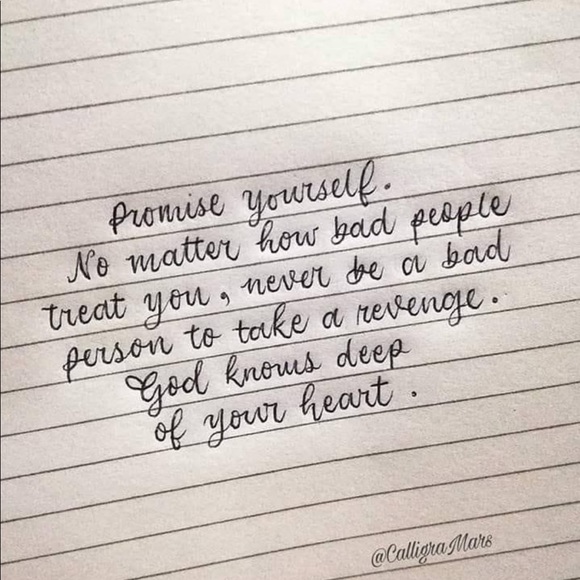 Promise yourself.
No matter how bad people
treat you, never be a bad
person to take a revenge.
God knows deep
of your heart.
@CalligraMars